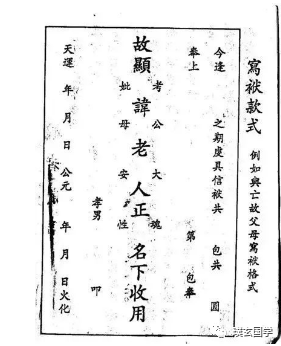 寫袱款式 例如與亡故父母寫袱格式
今逢 之期虔具信袱共 包共 圓
奉上 第 包奉
考公大魂
故顯 諱老人正 名下收用
妣母安性
孝男 叩
天運 年 月 日 公元 年 月 日火化
玄国学